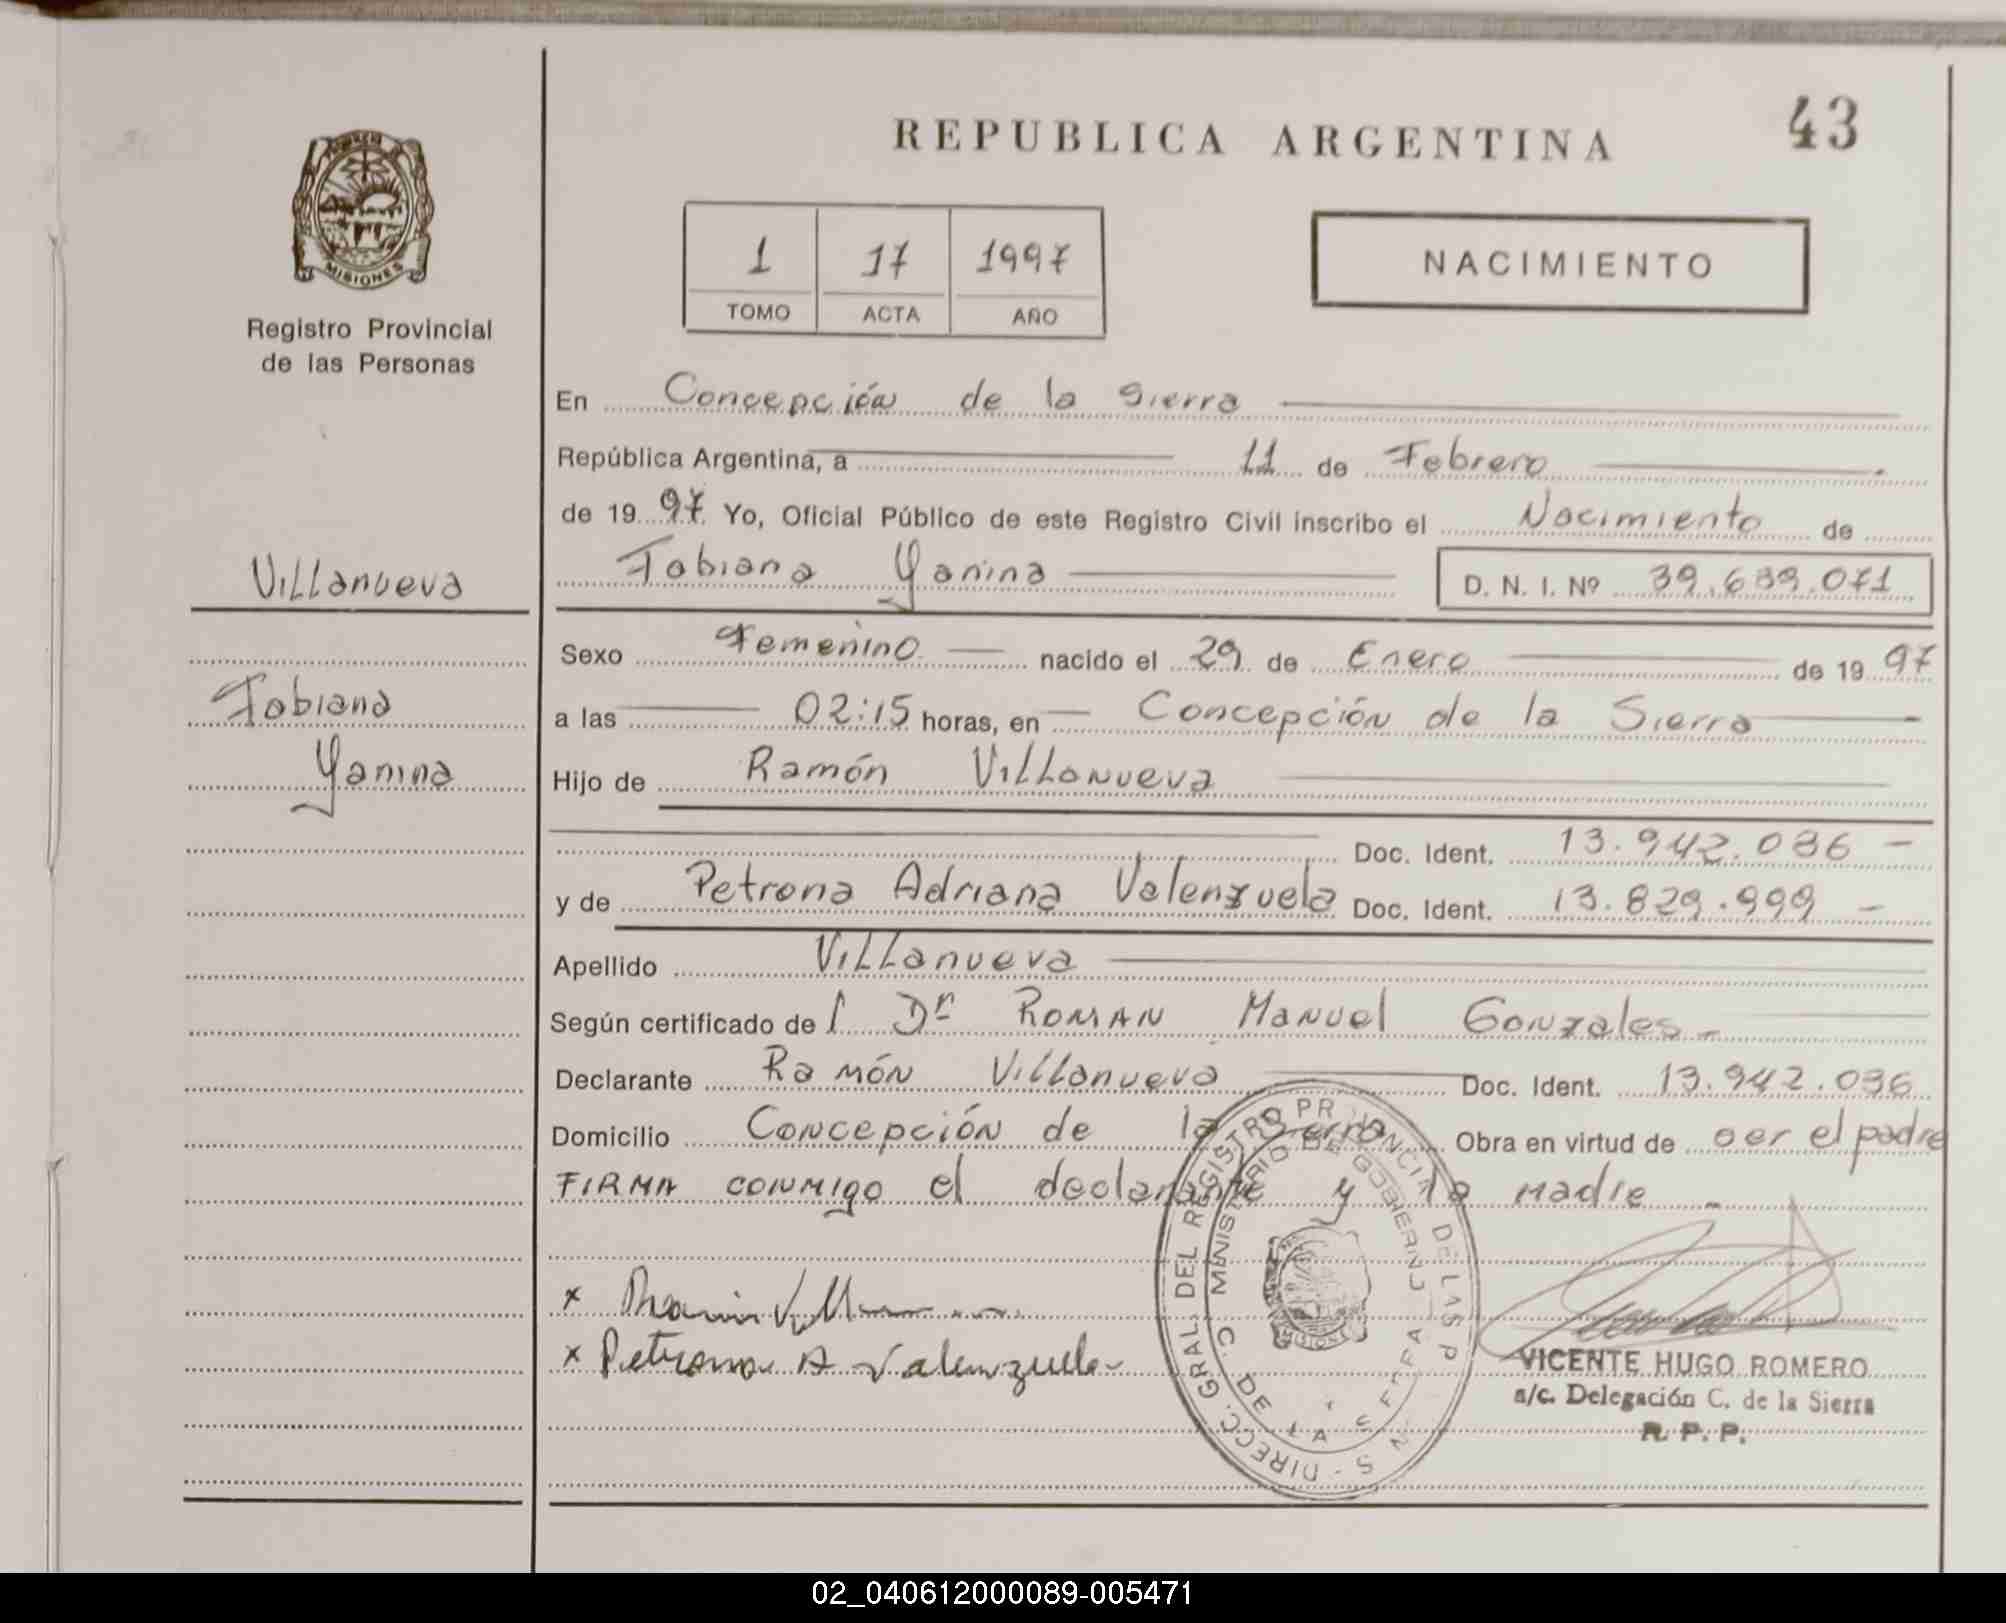 43
REPUBLICA ARGENTINA
MISIONES
Registro Provincial
de las Personas
1 17 1997
TOMO ACTA AÑO
NACIMIENTO
En Concepción de la Sierra
República Argentina, a 11 de Febrero
de 19 97 Yo, Oficial Público de este Registro Civil inscribo el Nacimiento de
Fabiana Yanina D. N. I. Nº 39.639.071
Villanueva
Fabiana
Yanina
Sexo Femenino nacido el 29 de Enero de 19 97
a las 02:15 horas, en Concepción de la Sierra
Hijo de Ramón Villanueva
Doc. Ident. 13.942.036
y de Petrona Adriana Valenzuela Doc. Ident. 13.829.999
Apellido Villanueva
Según certificado de l Dr ROMAN Manuel Gonzales
Declarante Ramón Villanueva Doc. Ident. 13.942.036
Domicilio Concepción de la Sierra Obra en virtud de ser el padre
FIRMA conmigo el declarante y la madre
x Ramón
x Petrona A Valenzuela
DIRECC. GRAL. DEL REGISTRO PROVINCIAL DE LAS P
MINISTERIO DE GOBIERNO
C. DE LA SIERRA
VICENTE HUGO ROMERO
a/c. Delegación C. de la Sierra
R. P. P.
02_040612000089-005471